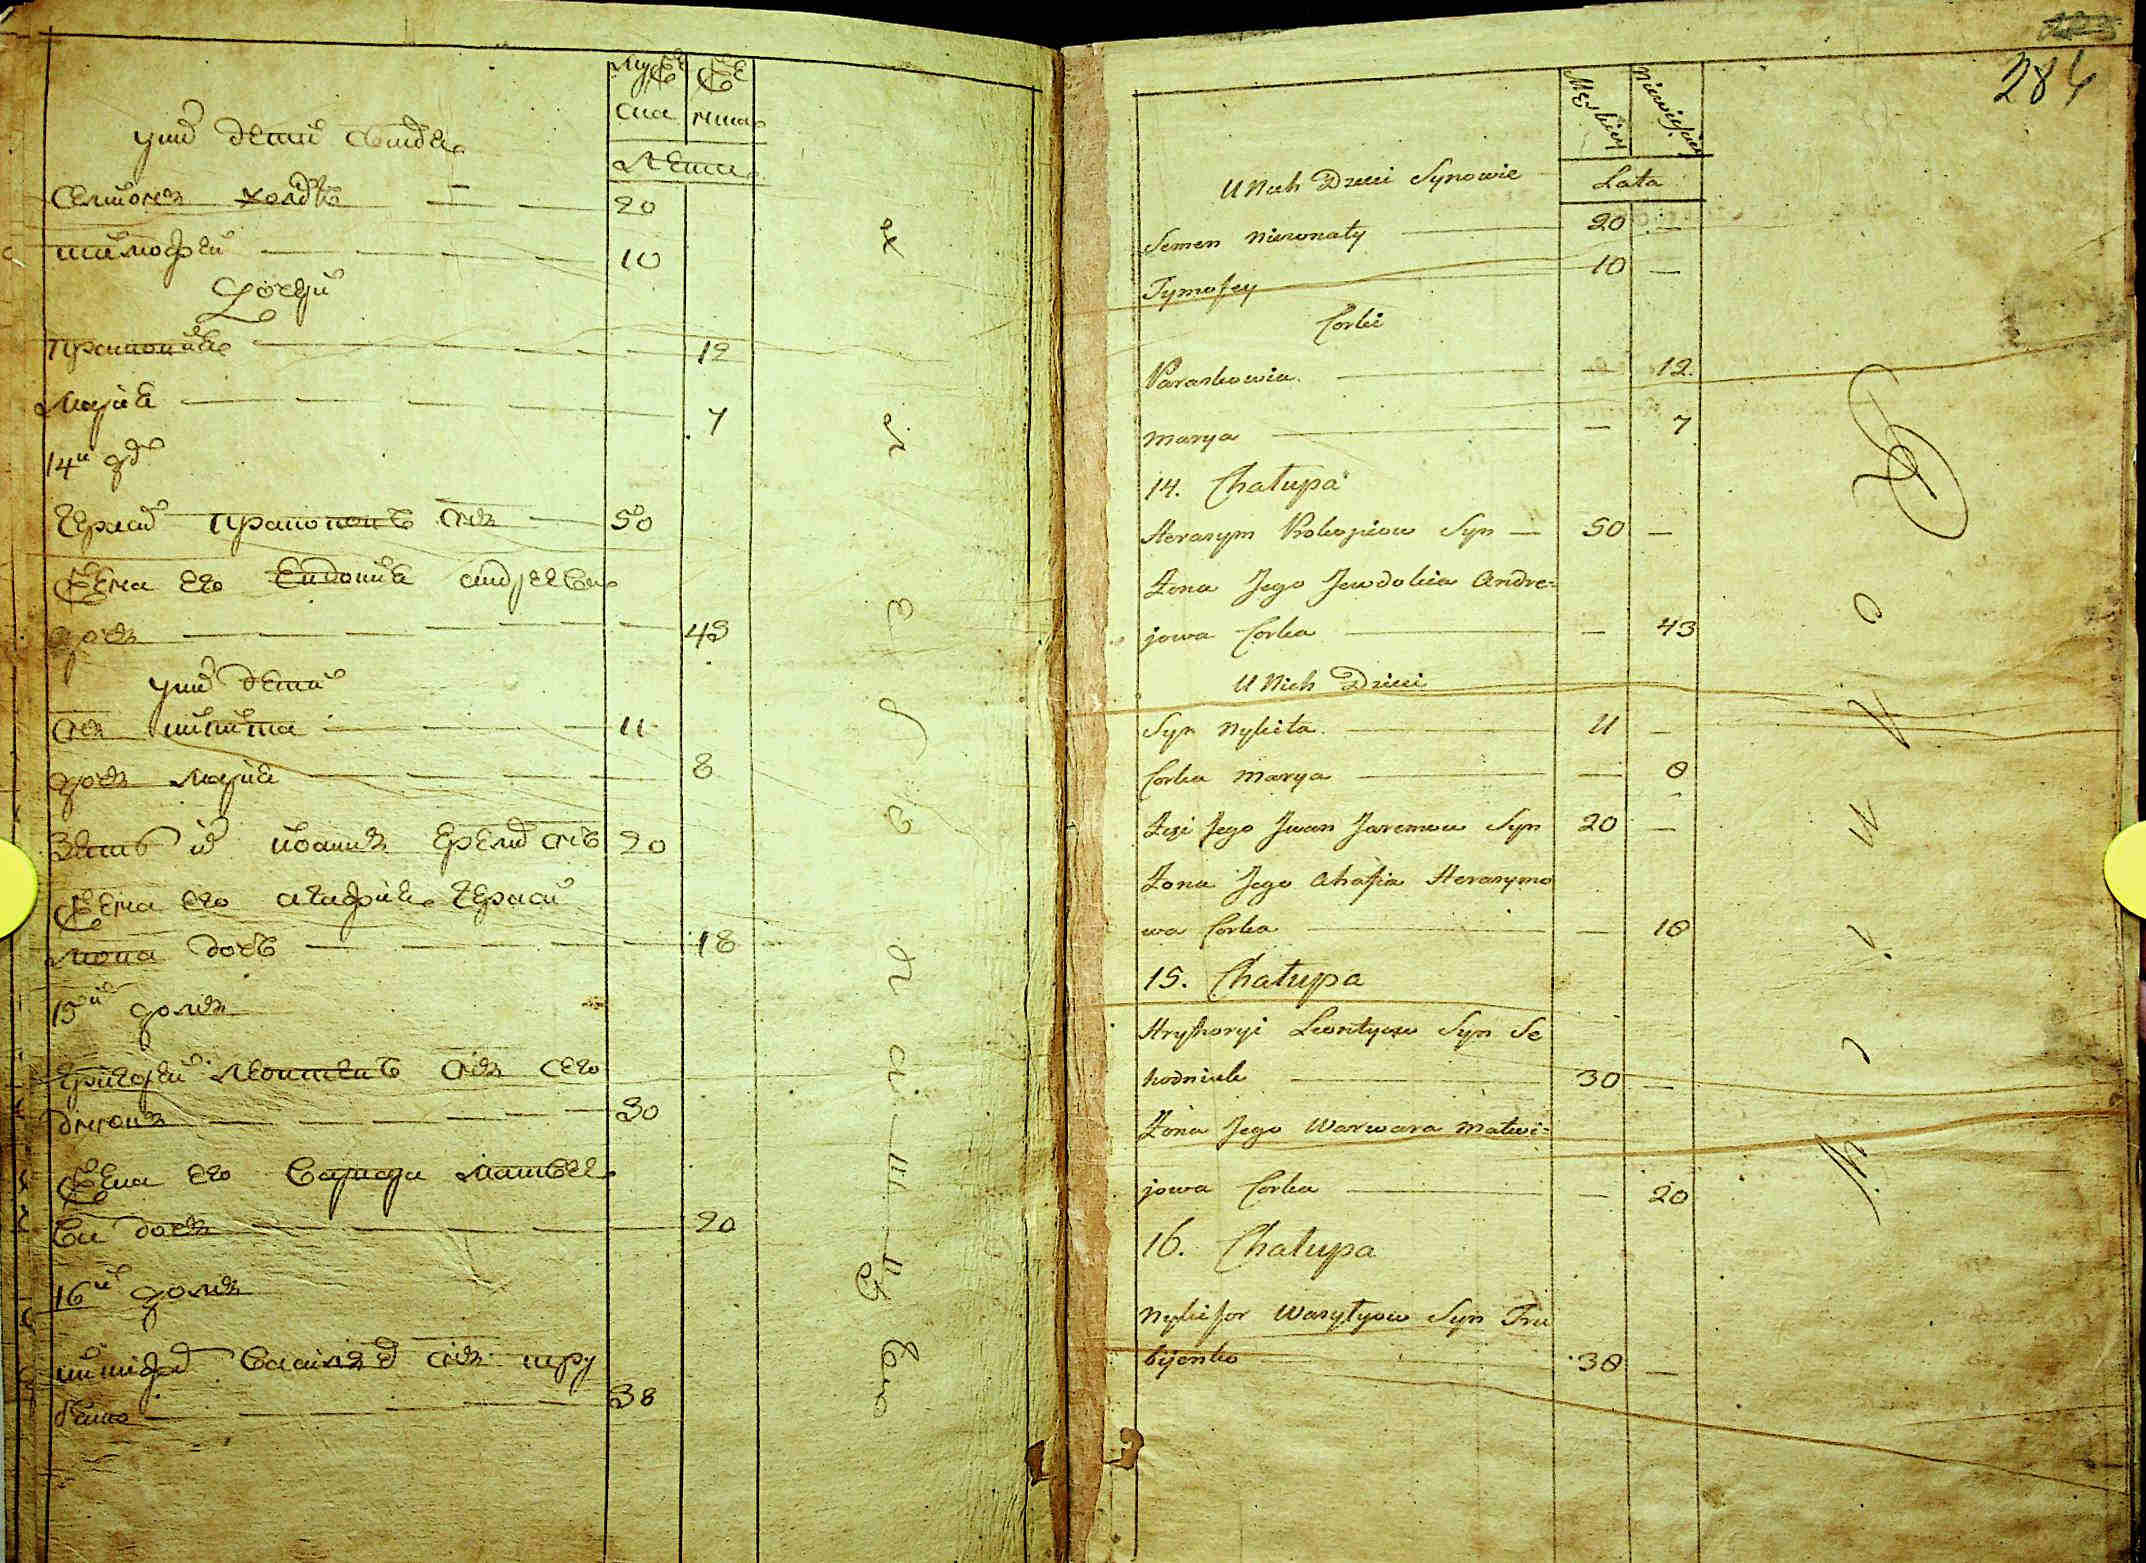 Муже
ска
Же
нска
Лета
у них дети синове
Семионъ холостъ 20
тимофей 10
дочери
12
Мария 7
14й д
Герасим Прокоповъ снъ 50
Жена его Евдокия андреева
дочъ 43
у них дети
снъ никита 11
дочъ Мария 8
Зять их иоаннъ Еремиевъ снъ 20
Жена его агафия Гераси
мова дочь 18
15й домъ
Григорей Леонтиевъ снъ сего
днюкъ 30
Жена его Варвара Матвее
ва дочъ 20
16й домъ
никифор Василев снъ тру
бенко 38
284
Męskiey
Niewieskiey
Lata
U Nich Dzieci Synowie
Semen nieżonaty 20 —
Tymofey 10 —
Corki
Paraskowia 12
Marya — 7
14. Chałupa
Herasym Prokopiow Syn 50 —
Żona Jego Jewdokia Andre=
jowa Corka — 43
U Nich Dzieci
Syn Nykita 11 —
Corka Marya — 8
Zięć Jego Jwan Jaremow Syn 20 —
Żona Jego Ahafia Herasymo
wa Corka — 18
15. Chałupa
Hryhoryi Leontyow Syn Se
hodniuk 30 —
Żona Jego Warwara Matwi=
jowa Corka — 20
16. Chałupa
Nykifor Wasylyow Syn Tru
bijenko 38 —